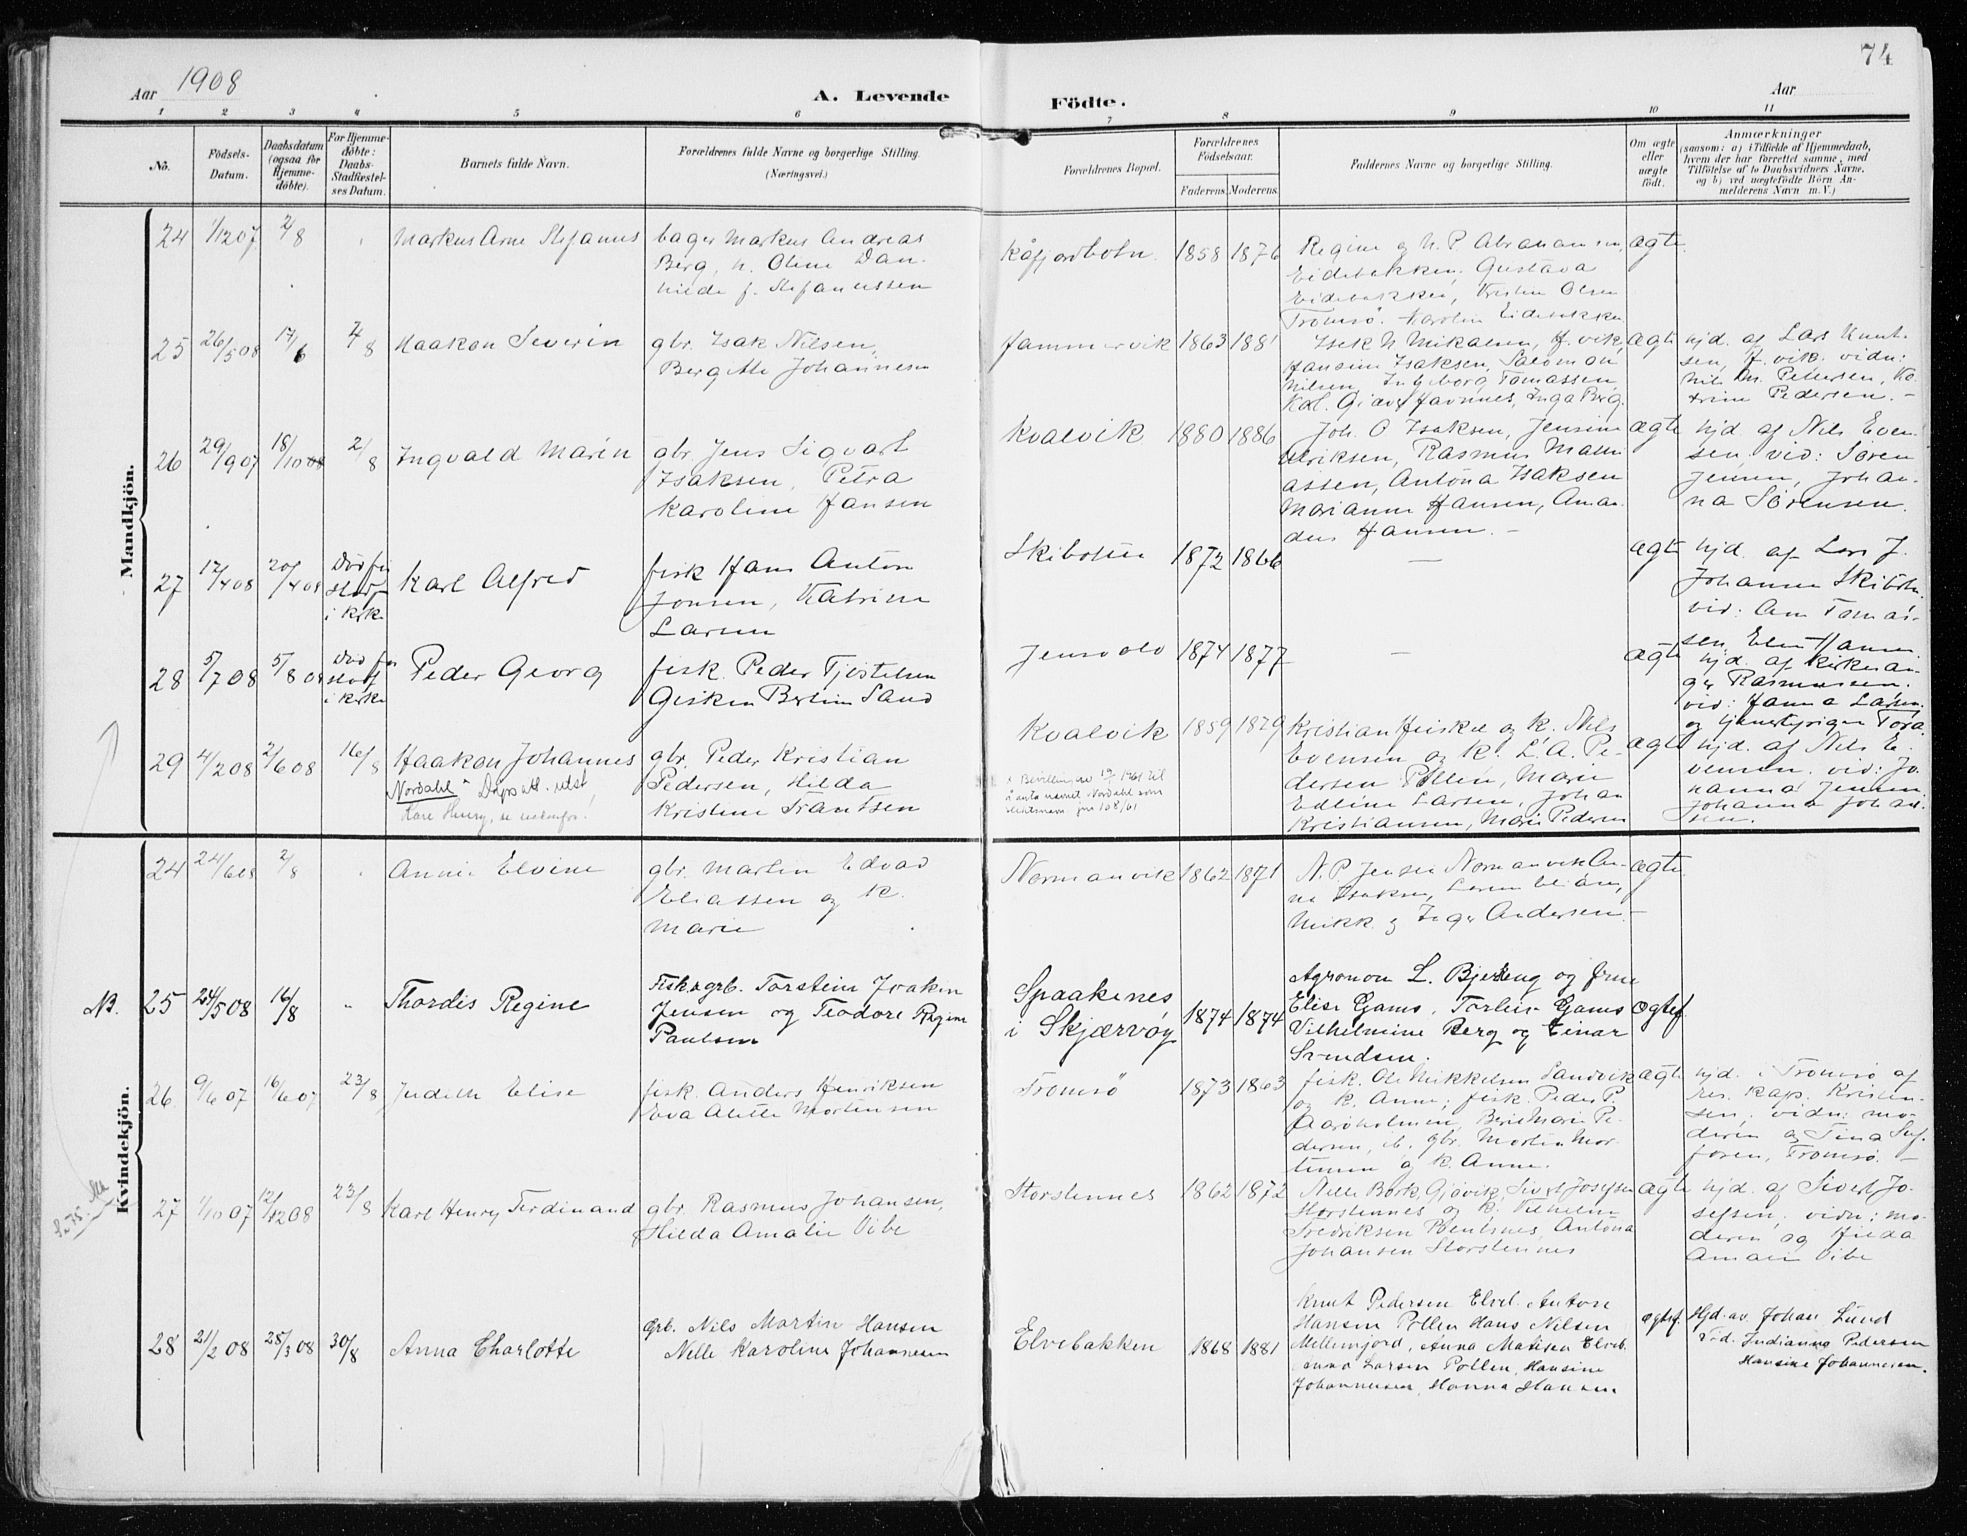 Aar 1908
A. Levende
Födte.
74
Aar
1 2 3 4 5 6 7 8 9 10 11
No.
Födsels-
Datum.
Daabsdatum
(ogsaa for
Hjemme-
döbte).
For Hjemme-
döbte:
Daabs-
Stadfæstel-
ses Datum.
Barnets fulde Navn.
Forældrenes fulde Navne og borgerlige Stilling.
(Næringsvei.)
Forældrenes Bopæl.
Forældrenes
Födselsaar.
Faderens. Moderens.
Faddernes Navne og borgerlig Stilling.
Om ægte
eller
uægte
födt.
Anmærkninger
(saasom: a) i Tilfælde af Hjemmedaab,
hvem der har forrettet samme, med
Tilföielse af to Daabsvidners Navne,
og b) ved uægtefödte Börn An-
melderens Navn m. V.)
Mandkjön.
24 1/12 07 2/8 Markus Arne Stefanus
bager Markus Andreas
Berg, h. Oline Dan-
hilde f. Stefanussen
Kåfjordbotn. 1858 1876
Regine og N. P. Abrahamsen
Eidebakken, Gustava
Eidebakken, Kristen Olsen
Tromsö, Karolin Eidebakken
ægte
25 26/5 08 17/6 7/8 Haakon Severin
gbr. Isak Nilsen,
Bergitte Johannesen
Jammervik 1863 1881
Isak N Mikalsen, J. vik,
Hansine Isaksen, Salomon
Nilsen, Ingeborg Tomassen,
Kal. Giæver Havnnes, Inga Berg.
ægte
hjd. af Lars Knut-
sen, J. vik. vidn:
Nils Dr. Pettersen, Ka-
trine Pedersen. -
26 29/9 07 18/10 08 2/8 Ingvald Marin
gbr. Jens Sigvart
Isaksen, Petra
Karoline Hansen
Kvalvik 1880 1886
Joh. O Isaksen, Jensine
Ulriksen, Rasmus Math-
iassen, Antona Isaksen
Marianne Hansen, Aman-
dus Hansen. -
ægte
hjd. af Nils Even-
sen, vid: Sören
Jensen, Johan-
na Sörensen.
27 17/4 08 20/4 08 Död før
stadf
i kirke
Karl Alfred
fisk Hans Anton
Jonsen, Katrine
Larsen
Skibotten 1872 1866
ægte
hjd. af Lars J.
Johansen Skibotn
vid: Ane Tomas-
sen, Elen Hansen
28 5/7 08 5/8 08 Död før
stadf
i kirke
Peder Georg
fisk. Peder Tjöstelsen
Gisken Berline Sand
Jensvold 1874 1877
ægte
hjd. af kirkesan-
ger Rasmussen.
vid: Hanna Larsen
og tjenestepige Tora
29 4/2 08 2/6 08 16/8 Haakon Johannes
Nordahl Dåpsatt. utst.
Kåre Henry
gbr. Peder Kristian
Pedersen, Hilda
Kristine Frantsen
Kvalvik 1859 1879
x Bevilling av 19/ 1961 til
å anta navnet Nordahl som
slektsnavn jnr 108/61
Kristian Heiskel og k. Nils
Evensen og k. L. A. Pe-
dersen Pollen, Marie
Edline Larsen, Johan
Kristiansen, Marie Pedersen
ægte
hjd. af Nils E-
vensen. vid: Jo-
hanna Jensen,
Johanna Johan-
sen.
Kvindekjön.
24 24/6 08 2/8 Annie Elvine
gbr. Martin Edvard
Eliassen og k.
Marie
Normanvik 1862 1871
N. P. Jensen Normanvik An-
na Isaksen,
Mikk. og Inger Andersen. -
ægte
NB. 25 24/5 08 16/8 " Thordis Regine
Fisk.ogrb. Torstein Joakin
Jensen og Teodore Regine
Paulsen
Spaakenes
i Skjærvøy 1874 1874
Agronom L. Bjereng og frue
Elise Gams, Torleif Gams
Vilhelmine Berg og Einar
Svendsen.
ægtef
26 9/6 07 16/6 07 23/8 Judith Elise
fisk. Anders Henriksen
Eva Alette Mortensen
Tromsö 1873 1863
fisk. Ole Mikkelsen Sandvik
og k. Anne; fisk. Peder P.
Aaröholmen, Berit Marie Pe-
dersen, ib. gbr. Morten Mor-
tensen og k. Anne.
ægte
hjd. i Tromsö af
res. kap. Kristen-
sen, vidn: mo-
deren og Tina Sig-
forsen, Tromsö. -
27 1/10 07 12/12 08 23/8 Karl Henry Ferdinand
gbr. Rasmus Johansen,
Hilda Amalie Vibe
Storstennes 1862 1872
Nelle Bork, Gjövik, Sivert Josefsen
Storstennes og k. Vilhelm
Fredriksen Rentsnes, Antona
Johansen Storstennes
ægte
hjd. af Sivert Jo-
sefsen, vidn: mo-
deren og Hilda
Amalie Vibe
28 21/2 08 28/3 08 30/8 Anna Charlotte
Grb. Nils Martin Hansen
Nelle Karoline Johannesen
Elvebakken 1868 1881
Knut Pedersen Elveb. Antone
Hansen Pollen Hans Nilsen
Mellemjord, Anna Matisen Elveb.
Anna Larsen Pollen, Hansine
Johannessen, Hanna Hansen
ægtef.
Hjd. av Johan Lund
Vid. Indianna Pedersen
Hansine Johannesen.